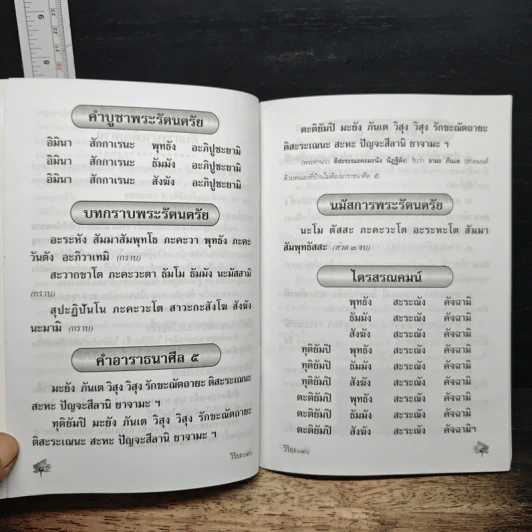 คำบูชาพระรัตนตรัย
อิมินา สักกาเรนะ พุทธัง อะภิปูชะยามิ
อิมินา สักกาเรนะ ธัมมัง อะภิปูชะยามิ
อิมินา สักกาเรนะ สังฆัง อะภิปูชะยามิ
บทกราบพระรัตนตรัย
อะระหัง สัมมาสัมพุทโธ ภะคะวา พุทธัง ภะคะ
วันตัง อะภิวาเทมิ (กราบ)
สะวากขาโต ภะคะวะตา ธัมโม ธัมมัง นะมัสสามิ
(กราบ)
สุปะฏิปันโน ภะคะวะโต สาวะกะสังโฆ สังฆัง
นะมามิ (กราบ)
คำอาราธนาศีล ๕
มะยัง ภันเต วิสุง วิสุง รักขะณัตถายะ ติสะระเณนะ
สะหะ ปัญจะสีลานิ ยาจามะ ฯ
ทุติยัมปิ มะยัง ภันเต วิสุง วิสุง รักขะณัตถายะ
ติสะระเณนะ สะหะ ปัญจะสีลานิ ยาจามะ ฯ
ตะติยัมปิ มะยัง ภันเต วิสุง วิสุง รักขะณัตถายะ
ติสะระเณนะ สะหะ ปัญจะสีลานิ ยาจามะ ฯ
นมัสการพระรัตนตรัย
นะโม ตัสสะ ภะคะวะโต อะระหะโต สัมมา
สัมพุทธัสสะ (สวด ๓ จบ)
ไตรสรณคมน์
พุทธัง สะระณัง คัจฉามิ
ธัมมัง สะระณัง คัจฉามิ
สังฆัง สะระณัง คัจฉามิ
ทุติยัมปิ พุทธัง สะระณัง คัจฉามิ
ทุติยัมปิ ธัมมัง สะระณัง คัจฉามิ
ทุติยัมปิ สังฆัง สะระณัง คัจฉามิ
ตะติยัมปิ พุทธัง สะระณัง คัจฉามิ
ตะติยัมปิ ธัมมัง สะระณัง คัจฉามิ
ตะติยัมปิ สังฆัง สะระณัง คัจฉามิฯ